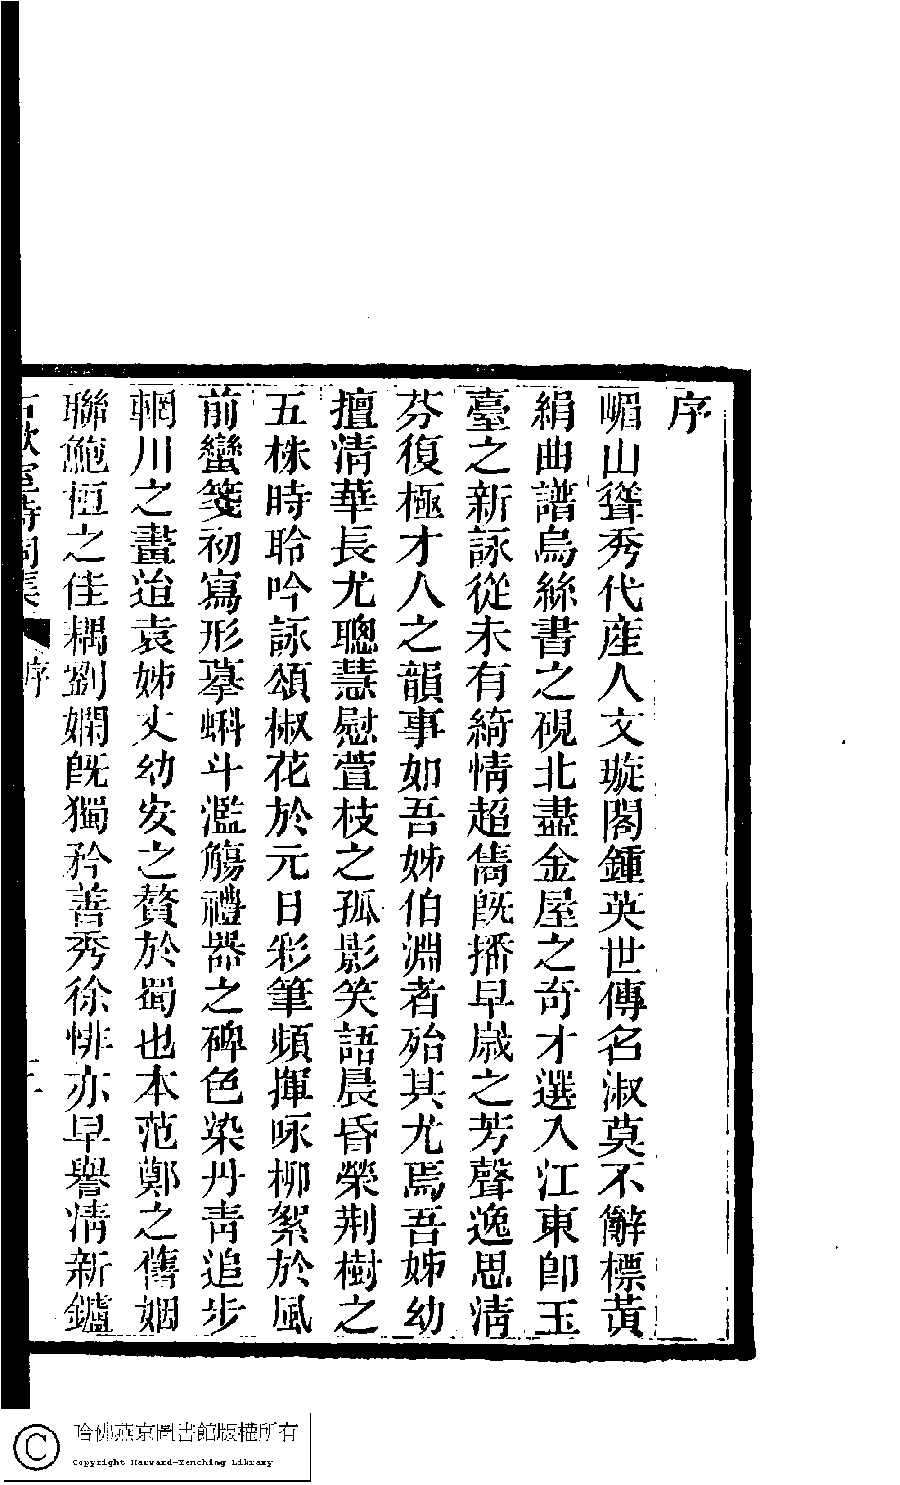 序
嵋山聳秀代產人文璇閣鍾英世傳名淑莫不辭標黃
絹曲譜烏絲書之硯北盡金屋之奇才選入江東卽玉
臺之新詠從未有綺情超儁旣播早歲之芳聲逸思淸
芬復極才人之韻事如吾姊伯淵者殆其尤焉吾姊幼
擅淸華長尤聰慧慰萱枝之孤影笑語晨昏榮荆樹之
五株時聆吟詠頌椒花於元日彩筆頻揮咏柳絮於風
前蠻箋初寫形摹蝌斗濫觴禮器之碑色染丹靑追步
輞川之畫迨袁姊丈幼安之贅於蜀也本范鄭之舊姻
聯鮑桓之佳耦劉嫻旣獨矜善秀徐悱亦早譽淸新鑪
室詩詞集 序
哈佛燕京圖書館版權所有
Copyright Harvard-Yenching Library